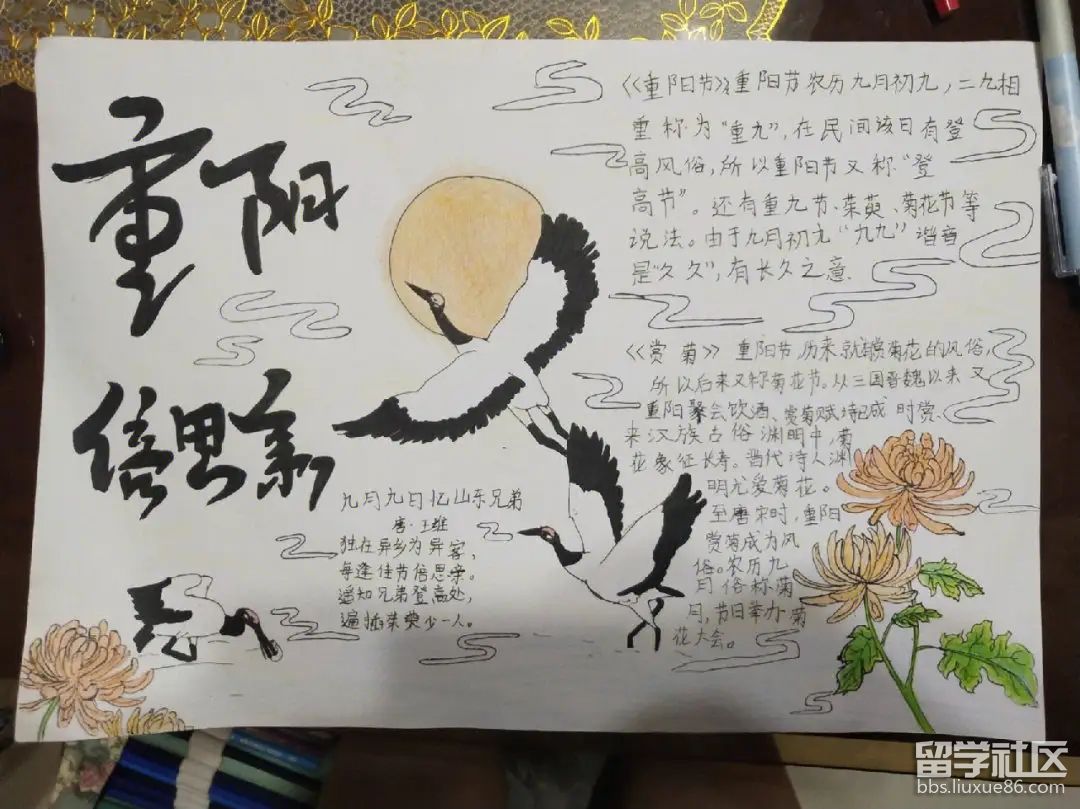 重阳
倍思亲
《重阳节》重阳节农历九月初九，二九相
重称为“重九”，在民间该日有登
高风俗，所以重阳节又称“登
高节”。还有重九节、茱萸、菊花节等
说法。由于九月初九“九九”谐音
是“久久”，有长久之意.
《赏菊》重阳节,历来就有赏菊花的风俗,
所以后来又称菊花节。从三国晋魏以来又
重阳聚会饮酒、赏菊赋诗已成时赏.
来汉族古俗渊明中,菊
花象征长寿。当代诗人渊
明尤爱菊花。
至唐宋时,重阳
赏菊成为风
俗。农历九
月俗称菊
月,节日举办菊
花大会。
九月九日忆山东兄弟
唐·王维
独在异乡为异客，
每逢佳节倍思亲。
遥知兄弟登高处，
遍插茱萸少一人。
留学社区
bbs.liuxue86.com